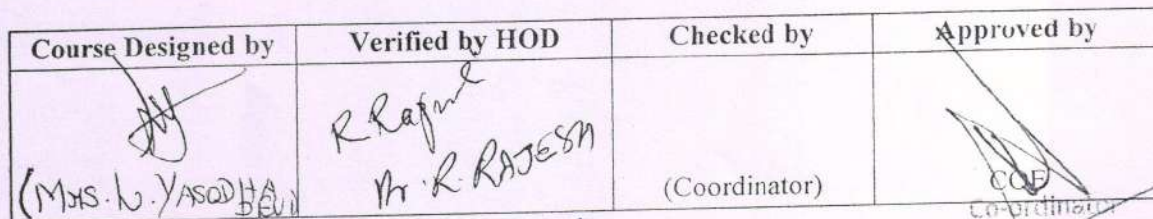 Course Designed by Verified by HOD Checked by Approved by
R. Rajesh
(Mrs. L. YASODHA DEVI) Dr. R. RAJESH (Coordinator) COE
Co-ordinator